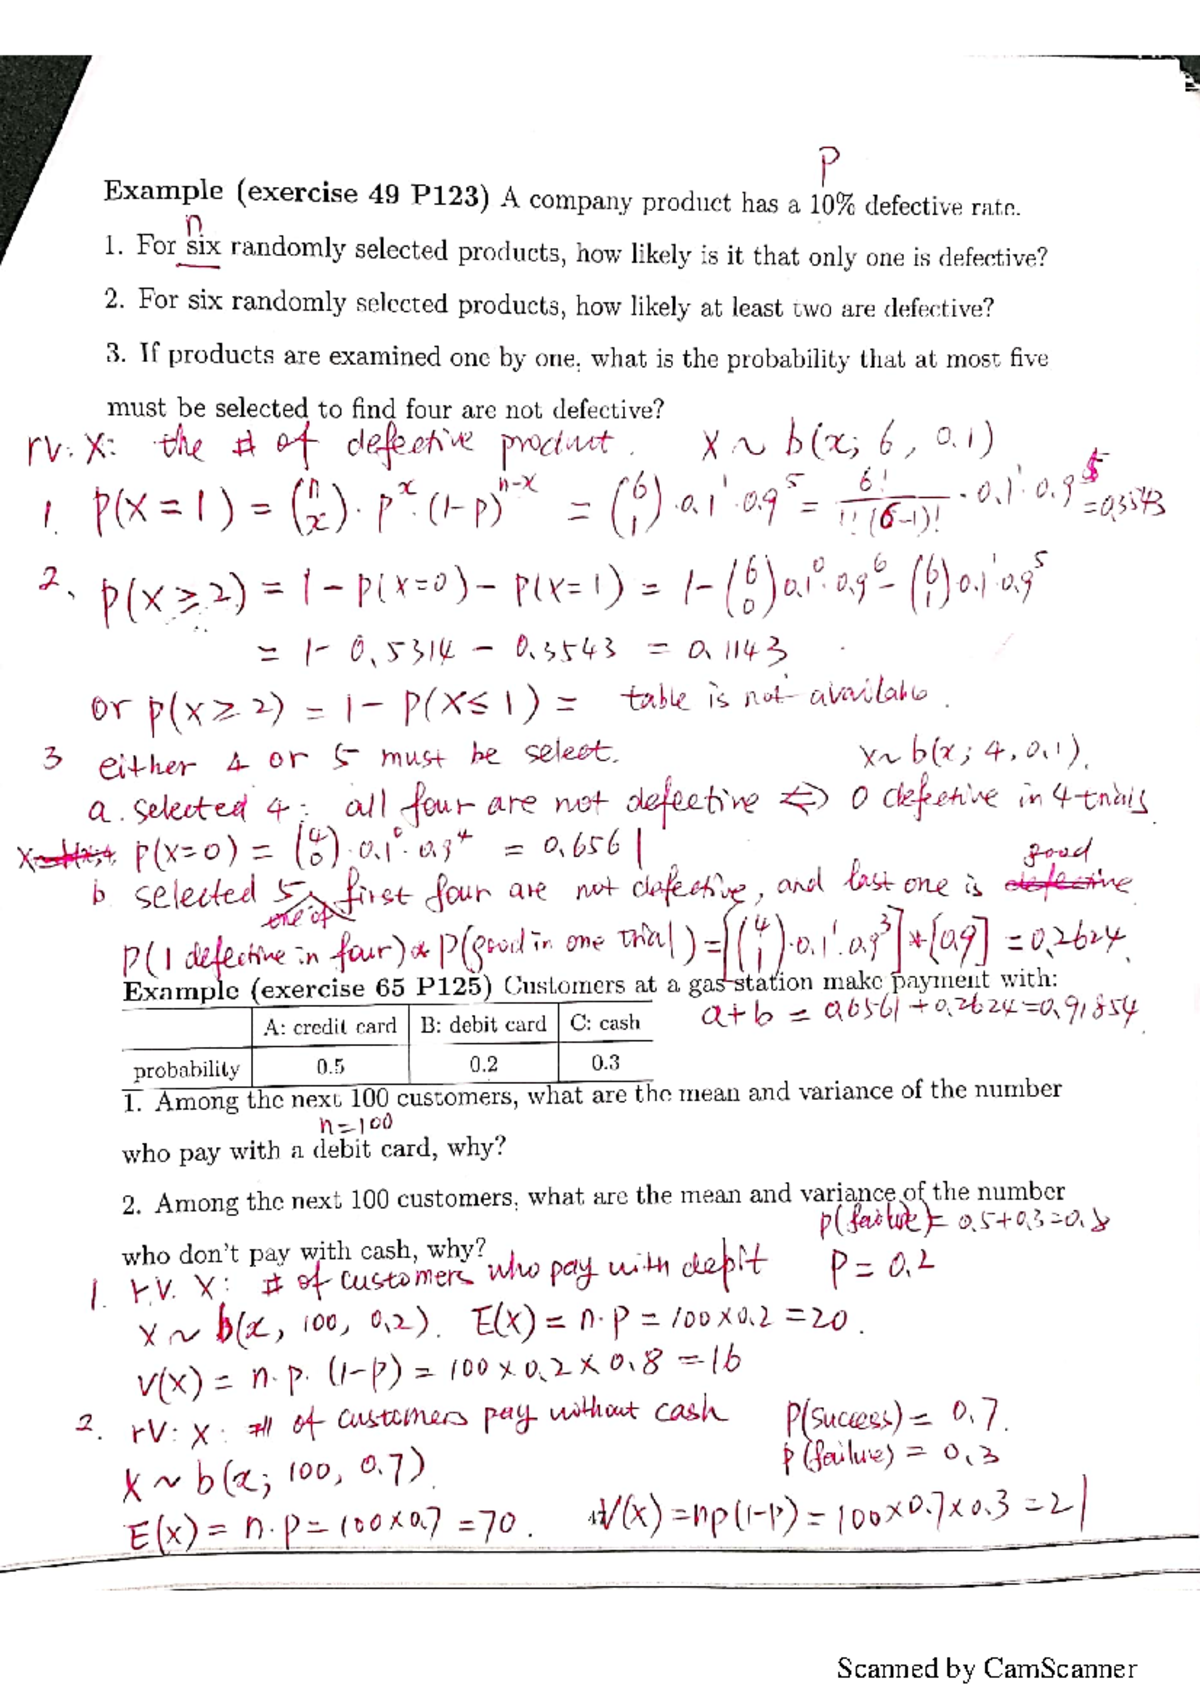 P
Example (exercise 49 P123) A company product has a 10% defective rate.
n
1. For six randomly selected products, how likely is it that only one is defective?
2. For six randomly selected products, how likely at least two are defective?
3. If products are examined one by one, what is the probability that at most five
must be selected to find four are not defective?
rv: X: the # of defective product. X ~ b(x; 6, 0.1)
1. P(X=1) = (n x) · p^x · (1-p)^n-x = (6 1) · 0.1^1 · 0.9^5 = 6! / 1! (6-1)! · 0.1^1 · 0.9^5 = 0.3543
2. P(X≥2) = 1 - P(X=0) - P(X=1) = 1 - (6 0) 0.1^0 · 0.9^6 - (6 1) 0.1^1 · 0.9^5
= 1 - 0.5314 - 0.3543 = 0.1143
or P(X≥2) = 1 - P(X≤1) = table is not available.
3 either 4 or 5 must be select. X~ b(x; 4, 0.1).
a. selected 4: all four are not defective ⇔ 0 defective in 4-trials
P(X=0) = (4 0) · 0.1^0 · 0.9^4 = 0.6561
good
b selected 5, first four are not defective, and last one is defective
one of
P(1 defective in four) * P(good in one trial) = [(4 1) · 0.1^1 · 0.9^3] * [0.9] = 0.2624.
Example (exercise 65 P125) Customers at a gas station make payment with:
a+b = 0.6561 + 0.2624 = 0.91854
A: credit card B: debit card C: cash
probability 0.5 0.2 0.3
1. Among the next 100 customers, what are the mean and variance of the number
n=100
who pay with a debit card, why?
2. Among the next 100 customers, what are the mean and variance of the number
P(failure) = 0.5+0.3=0.8
who don't pay with cash, why?
1. r.V. X: # of customers who pay with depit P = 0.2
X ~ b(x, 100, 0.2). E(X) = n·p = 100×0.2 = 20.
V(X) = n·p·(1-p) = 100 × 0.2 × 0.8 = 16
2. rV: X: # of customers pay without cash P(success) = 0.7.
P(failure) = 0.3
X ~ b(x; 100, 0.7)
E(X) = n·p = 100×0.7 = 70. V(X) = np(1-p) = 100×0.7×0.3 = 21
Scanned by CamScanner